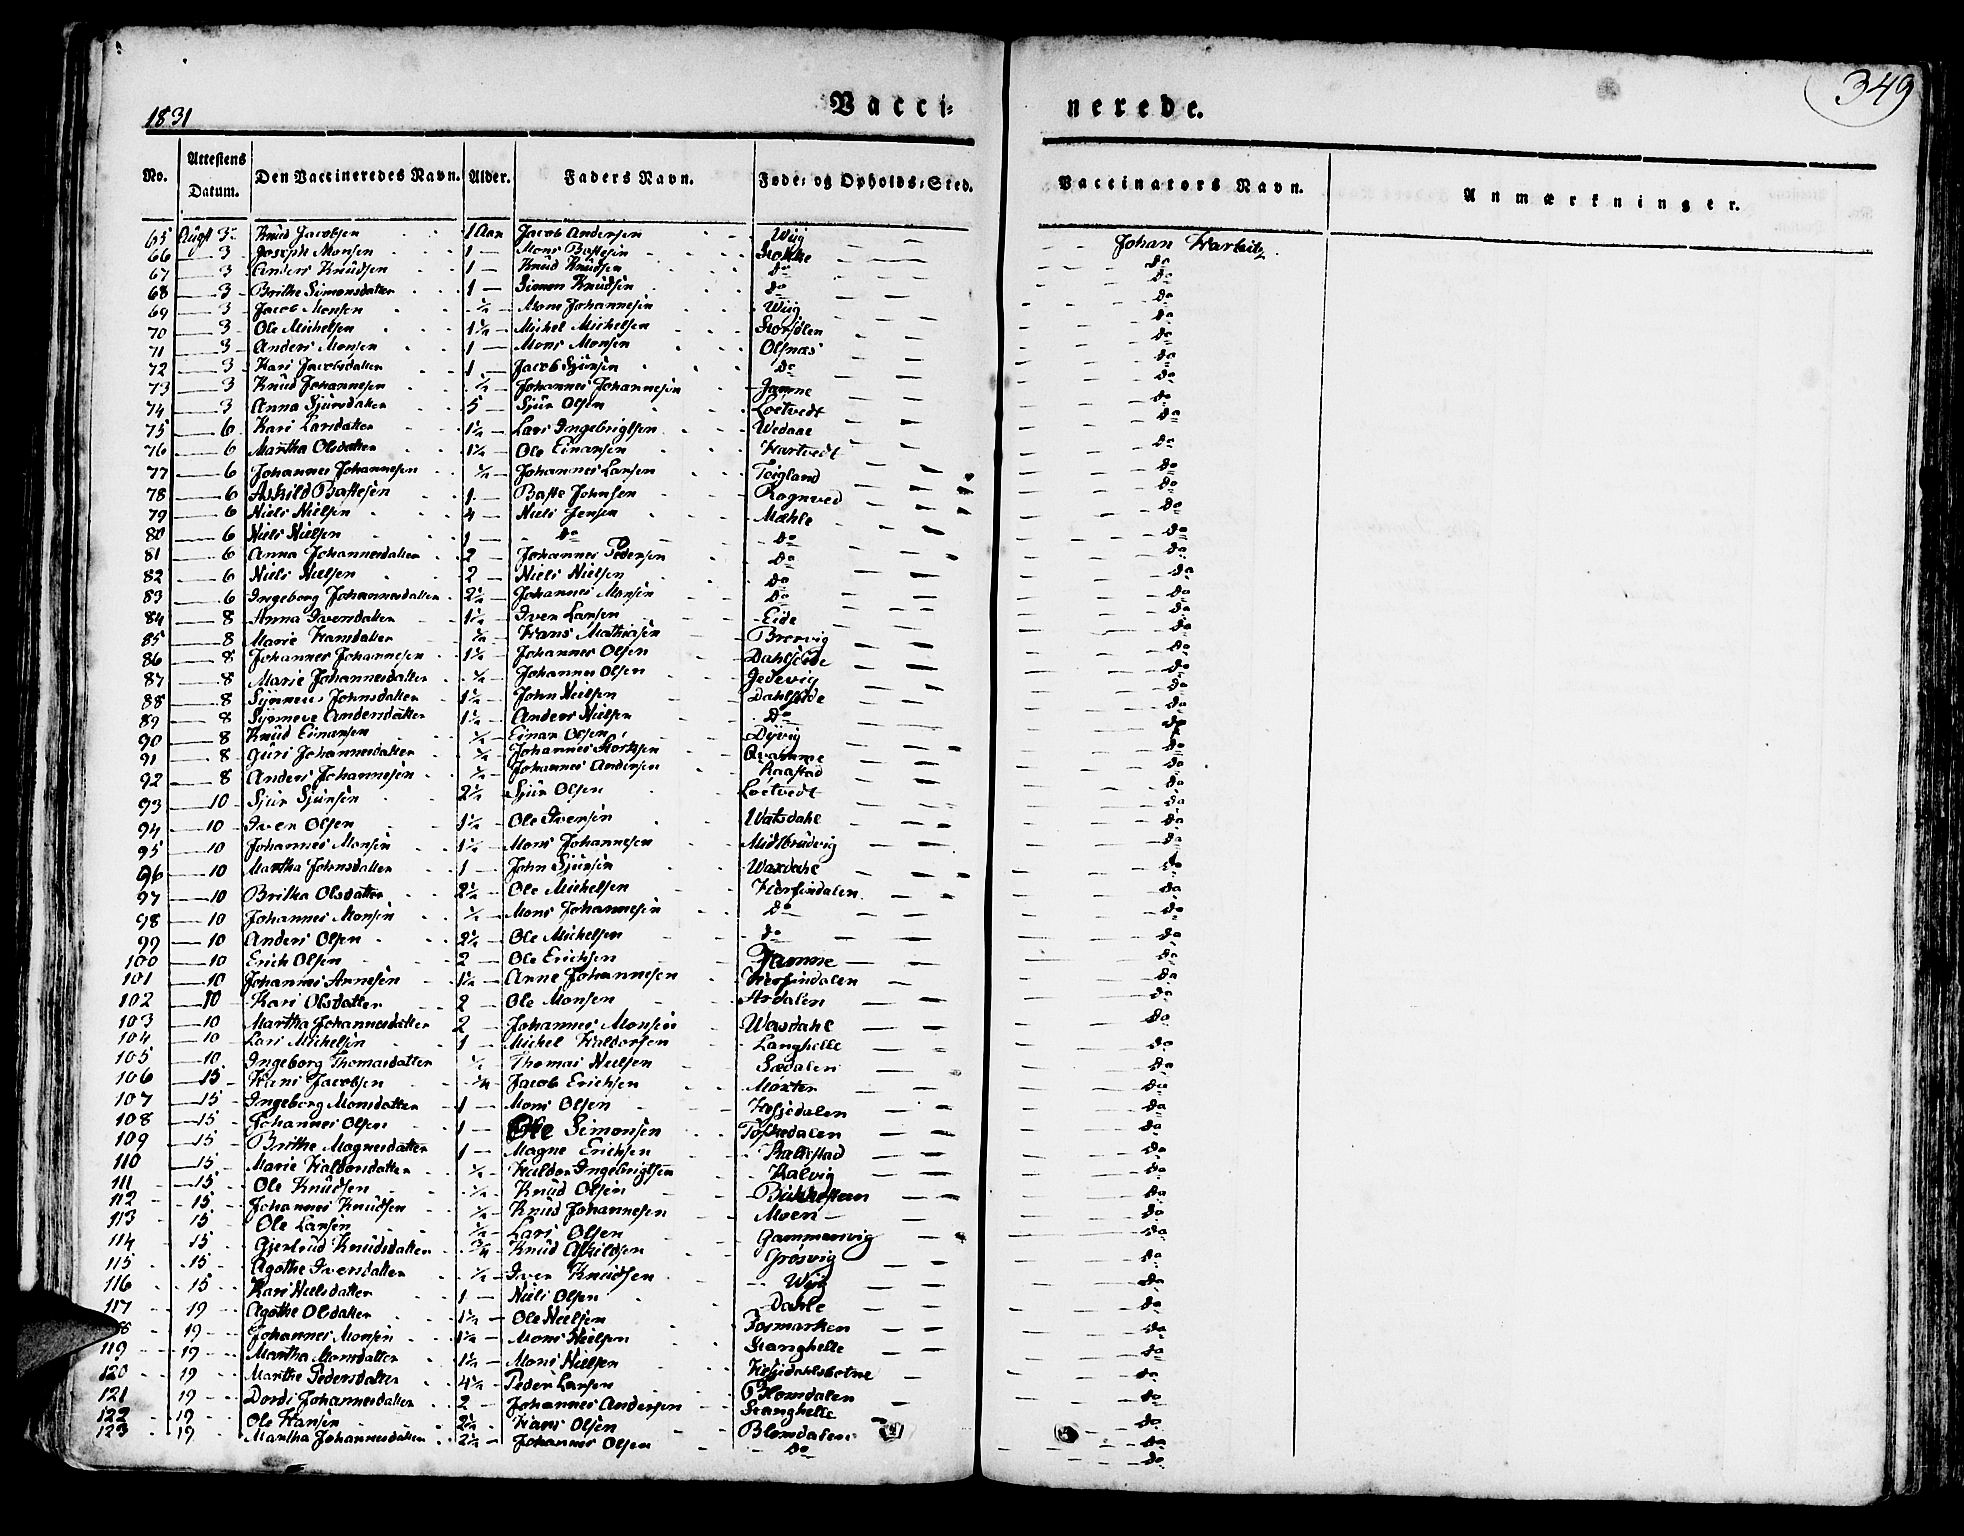 349
1831 Vacci- nerede.
No. Attestens Datum. Den Vaccineredes Navn. Alder. Faders Navn. Føde- og Opholds-Sted. Vaccinators Navn. Anmærkninger.
65 Augst 3 Knud Jacobsen 1 Aar Jacob Andersen Wiig Johan
66 3 Joseph Monsen 1 Mons Bastesen do
67 3 Anders Knudsen 1 Knud Knudsen do do
68 3 Brithe Simonsdatter 1 Simon Knudsen do do
69 3 Jacob Monsen ½ Mons Johannesen Wiig do
70 3 Ole Michelsen 1½ Michel Michelsen do
71 3 Anders Monsen 1 Mons Monsen Olsnæs do
72 3 Kari Jacobsdatter 1 Jacob Sjursen do do
73 3 Knud Johannesen ½ Johannes Johannesen do
74 3 Anna Sjursdatter 5 Sjur Olsen Loetvedt do
75 6 Kari Larsdatter 1½ Lars Ingebrigtsen Wedaae do
76 6 Martha Olsdatter 1½ Ole Einarsen Hartvedt do
77 6 Johannes Johannesen ½ Johannes Larsen Teigland do
78 6 Askild Bastesen 1 Baste Johnsen Rognved do
79 6 Niels Nielsen 4 Niels Jensen Mæhle do
80 6 Niels Nielsen 1 do do do
81 6 Anna Johannesdatter 2 Johannes Pedersen do do
82 6 Niels Nielsen 2 Niels Nielsen do do
83 6 Ingeborg Johannesdatter 2½ Johannes Monsen do do
84 8 Anna Iversdatter 1½ Iver Larsen Eide do
85 8 Marie Hansdatter ½ Hans Mathiasen Brervig do
86 8 Johannes Johannesen 1½ Johannes Olsen do
87 8 Marie Johannesdatter ½ Johannes Olsen Gedevig do
88 8 Synneve Johnsdatter 1½ John Nielsen do
89 8 Synneve Andersdatter 1½ Anders Nielsen do do
90 8 Knud Einarsen ½ Einar Olsen Dyvig do
91 8 Guri Johannesdatter ½ Johannes Qvamme do
92 8 Anders Johannesen ½ Johannes Andersen Raastad do
93 10 Sjur Sjursen 2½ Sjur Olsen Loetvedt do
94 10 Iver Olsen 1½ Ole Iversen do
95 10 Johannes Monsen 1½ Mons Johannesen Midtbrudvig do
96 10 Martha Johnsdatter 1 John Sjursen do
97 10 Britha Olsdatter 2½ Ole Michelsen do
98 10 Johannes Monsen ½ Mons Johannesen do do
99 10 Anders Olsen 2½ Ole Michelsen do do
100 10 Erich Olsen 2 Ole Erichsen do
101 10 Johannes Arnesen 1½ Arne Johannesen do
102 10 Kari Olsdatter 2 Ole Monsen Ardalen do
103 10 Martha Johannesdatter 2 Johannes Monsen do
104 10 Lars Michelsen 1 Michel Haldorsen Langhelle do
105 10 Ingeborg Thomasdatter ½ Thomas Nielsen Sædalen do
106 15 Hans Jacobsen ¼ Jacob Erichsen do
107 15 Ingeborg Monsdatter 1 Mons Olsen do
108 15 Johannes Olsen 1 Ole Simonsen Toskedalen do
109 15 Brithe Magnesdatter 1 Magne Erichsen do
110 15 Marie Haldorsdatter ½ Haldor Ingebrigtsen Kalvig do
111 15 Ole Knudsen ½ Knud Olsen do
112 15 Johannes Knudsen ½ Knud Johannesen Moen do
113 15 Ole Larsen ½ Lars Olsen Gammersvig do
114 15 Gjertrud Knudsdatter ¾ Knud Askildsen Grøsvig do
115 15 Agathe Iversdatter ½ Iver Knudsen Wiig do
116 15 Kari Nielsdatter 1 Niels Olsen Dahle do
117 19 Agathe Olsdatter 1½ Ole Nielsen Fosmarken do
118 19 Johannes Monsen 1½ Mons Nielsen Stanghelle do
119 19 Martha Monsdatter 1½ Mons Nielsen do
120 19 Marthe Pedersdatter 4½ Peder Larsen Blomdalen do
121 19 Dordi Johannesdatter 2 Johannes Andersen Stanghelle do
122 19 Ole Hansen 2½ Hans Olsen Blomdalen do
123 19 Martha Johannesdatter 2½ Johannes Olsen do do